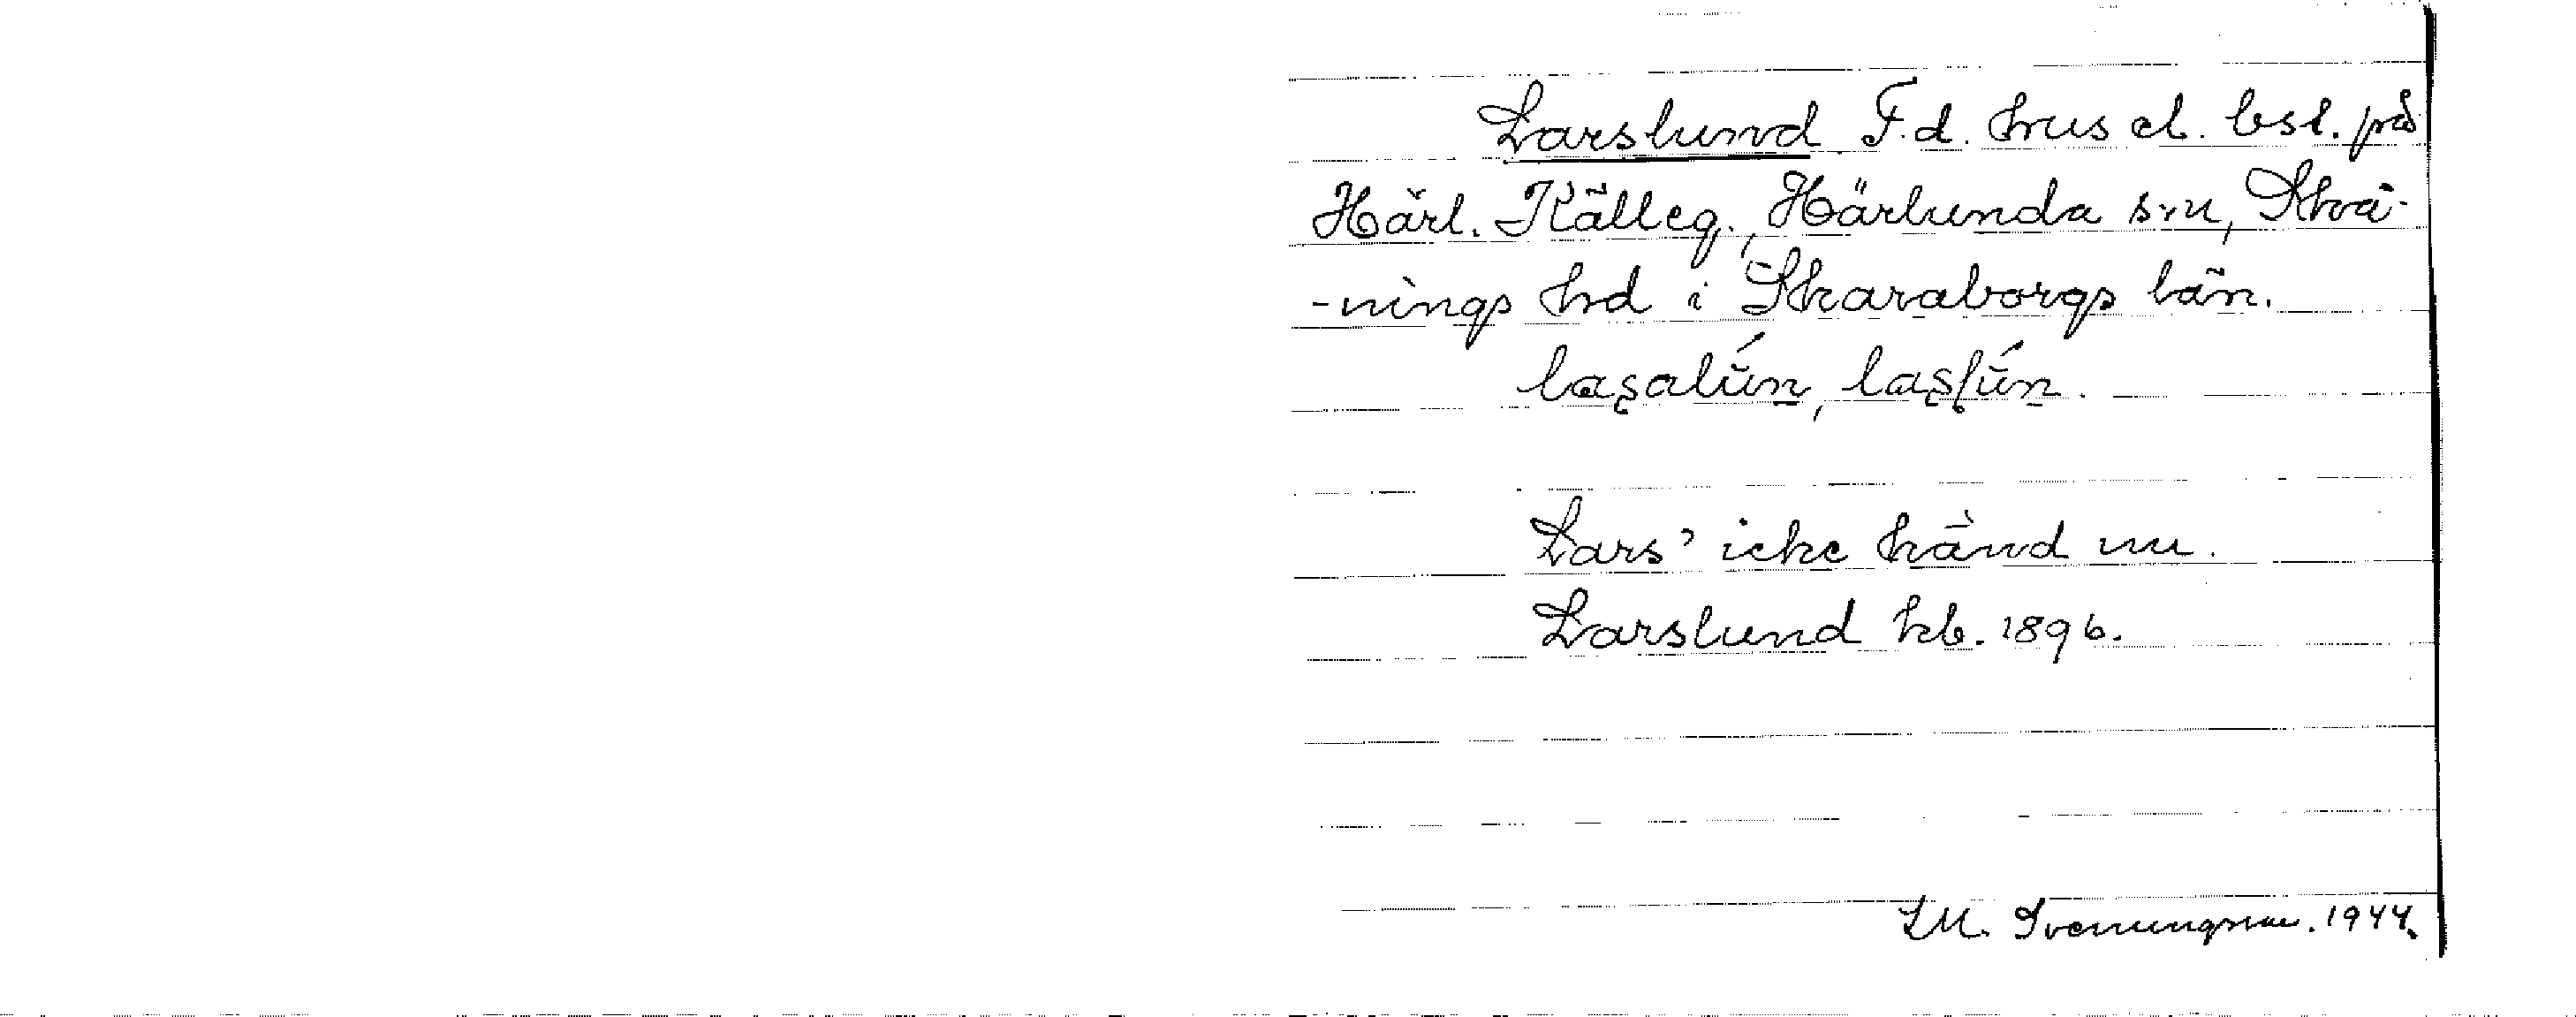 Larslund F.d. hus el. bst. på
Härl. Källeg., Härlunda sn, Skvä-
-nings hd i Skaraborgs län.
Lars' icke känd nu.
Larslund kb. 1896.
Svenungsson. 1944.